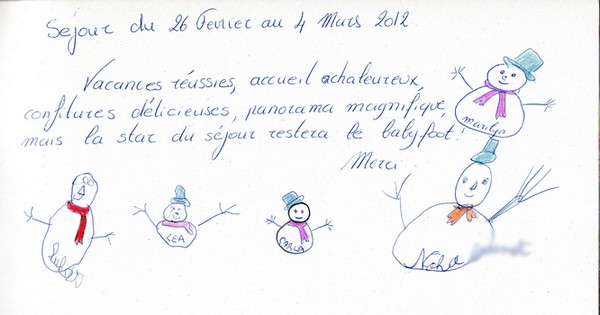 Séjour du 26 Fevrier au 4 Mars 2012.
Vacances réussies, accueil chaleureux,
confitures délicieuses, panorama magnifique,
mais la star du séjour restera le babyfoot!
Merci
marilyn
LEA
CARLA